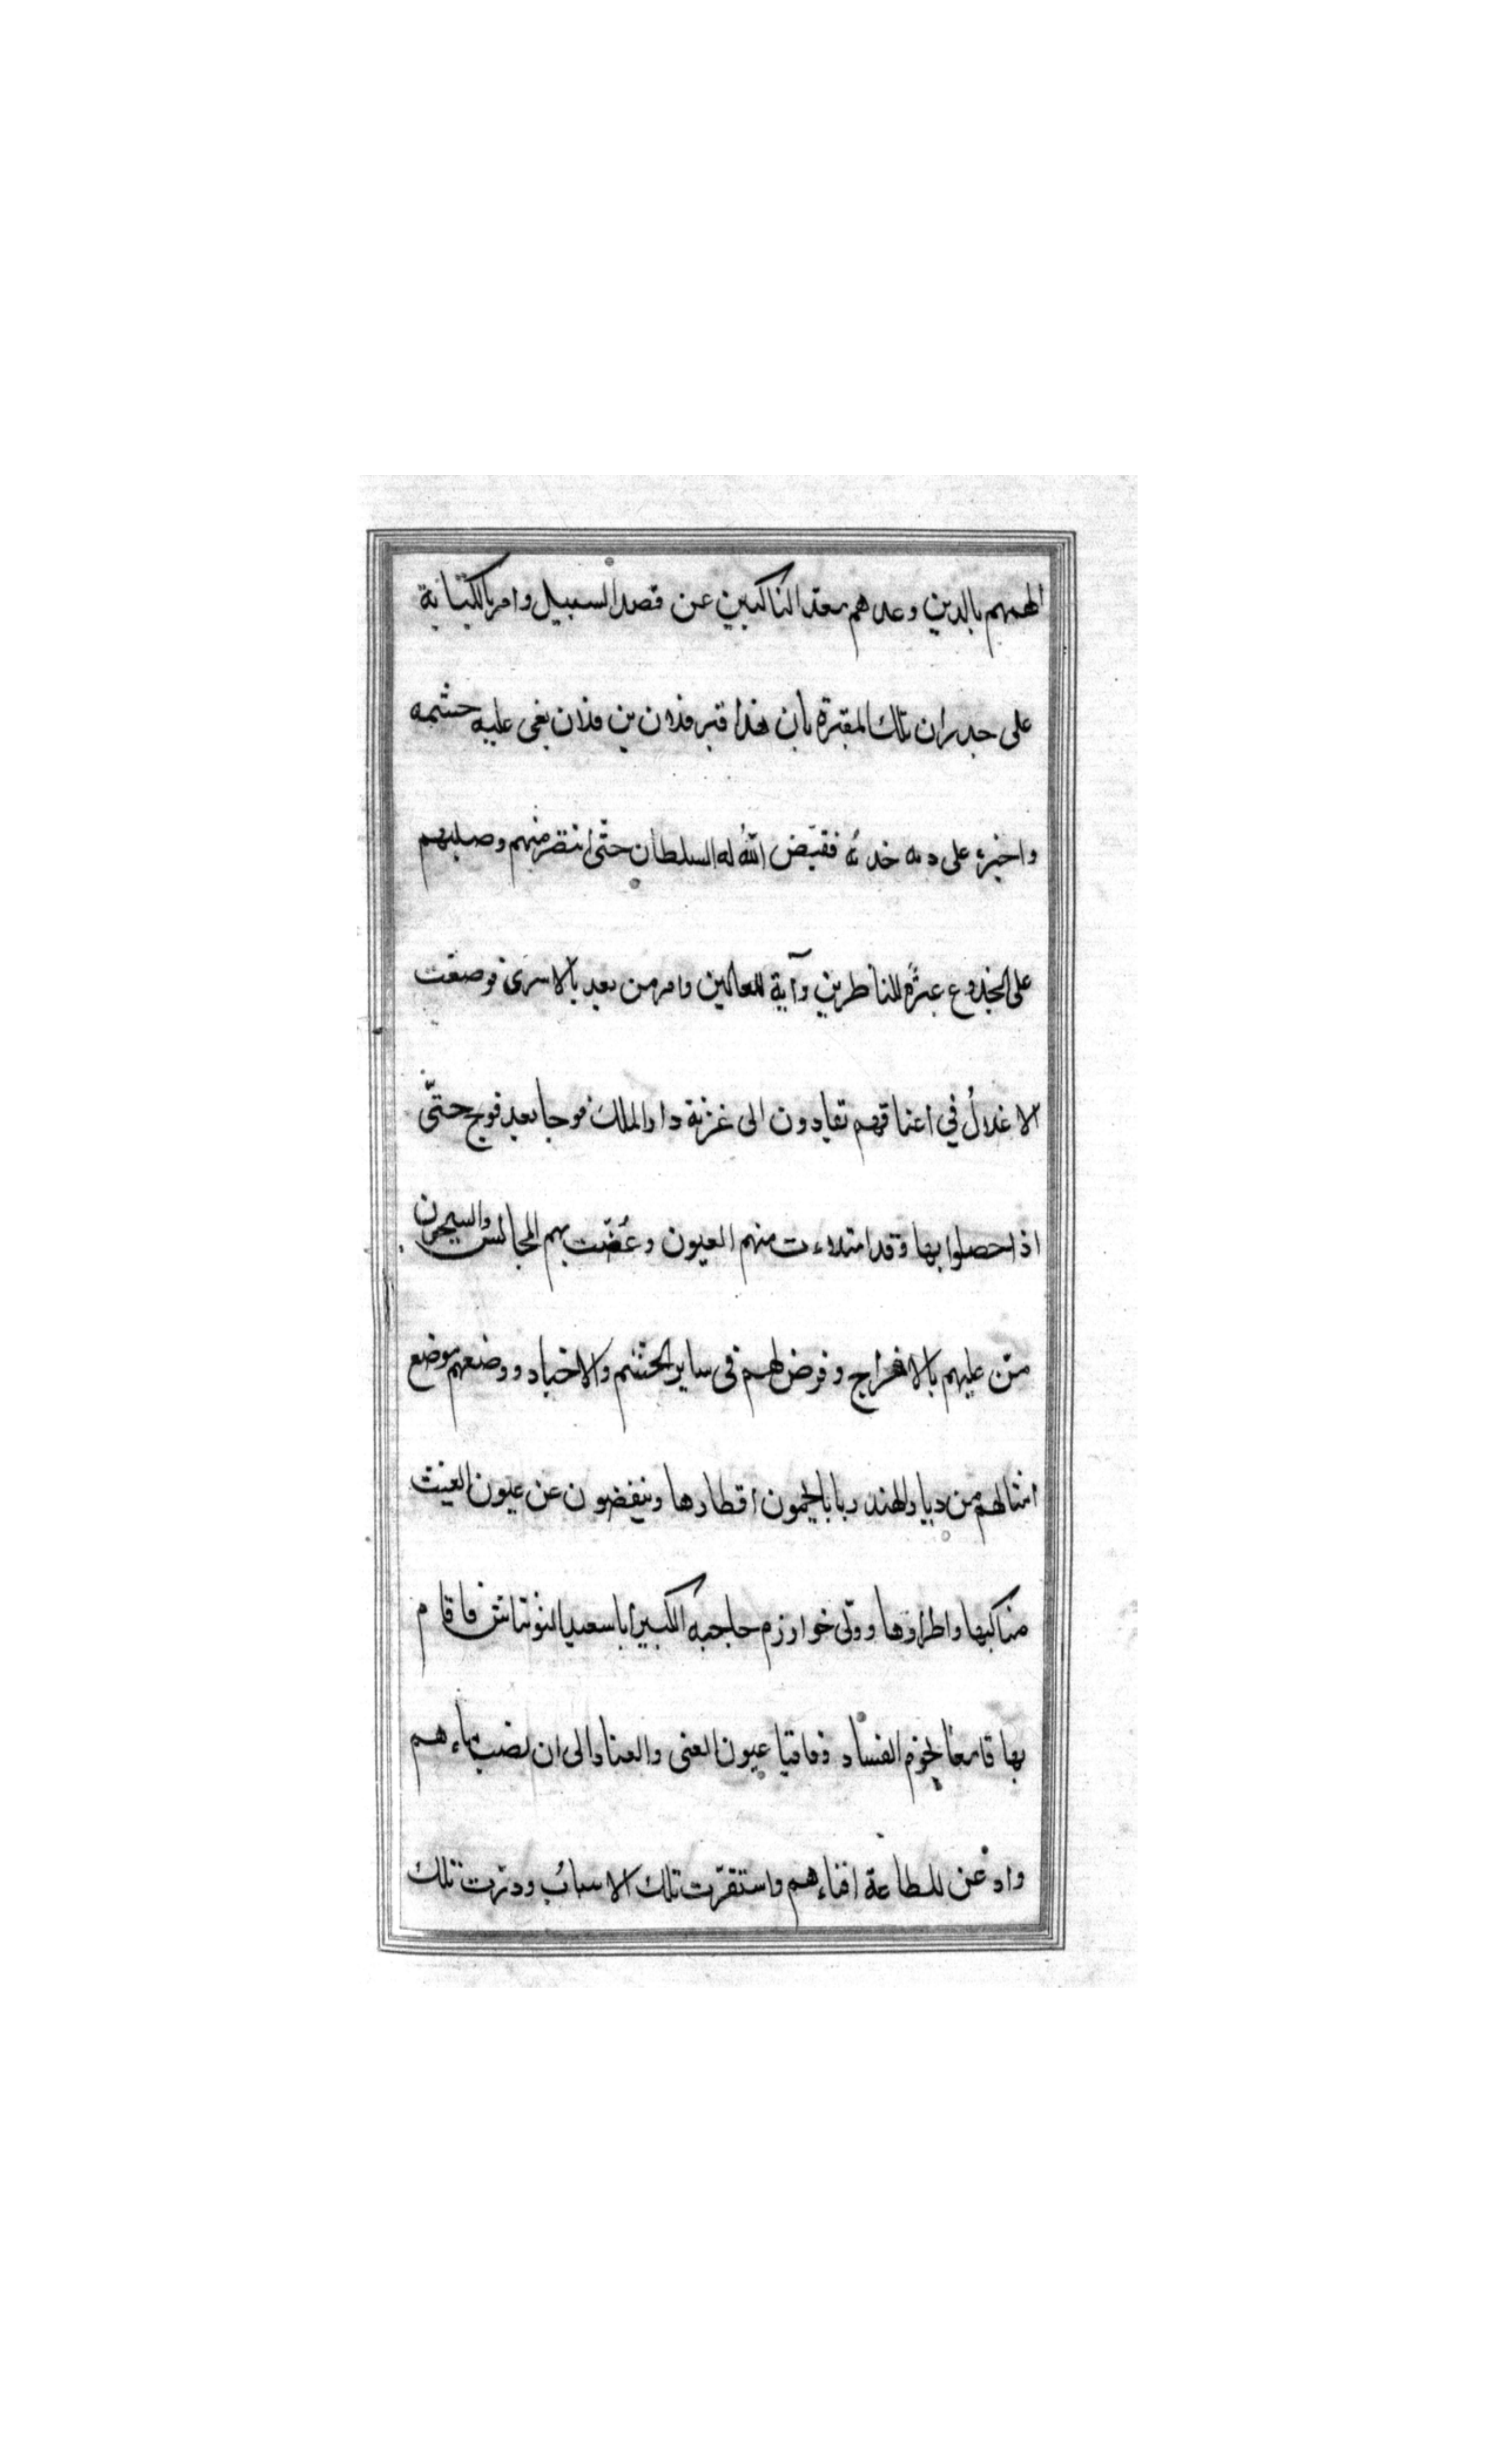 الهمهم بالدين وعدهم بعد الناكبين عن قصد السبيل وامر بالكتابة
على جدران تلك المقبرة بان هذا قبر فلان بن فلان بغى عليه حشمه
واجترء على دمه خدمه فقيّض اللّٰه له السلطان حتّى انتصر منهم وصلبهم
على الجذوع عبرةً للناظرين وآية للعالمين وامر من بعد بالاسرى فوضعت
الاغلالُ في اعناقهم تقادون الى غزنة دار الملك فوجا بعد فوج حتّى
اذا حصلوا بها وقد امتلاءت منهم العيون وغُصّت بهم المجالس والسجون
منّ عليهم بالافراج وفرض لهم فى ساير الحشم والاجناد ووضعهم موضع
امثالهم من ديار الهند ربايا يحمون اقطارها وينفضون عن عيون العيث
مناكبها واطرارها وولّى خوارزم حاجبه الكبير ابا سعيد التونتاش فاقام
بها قامعا لجزم الفساد وفاقيا عيون الغى والعناد الى ان نضب ماءهم
واذعن للطاعة افناءهم واستقرّت تلك الاسبابُ ودرّت تلك